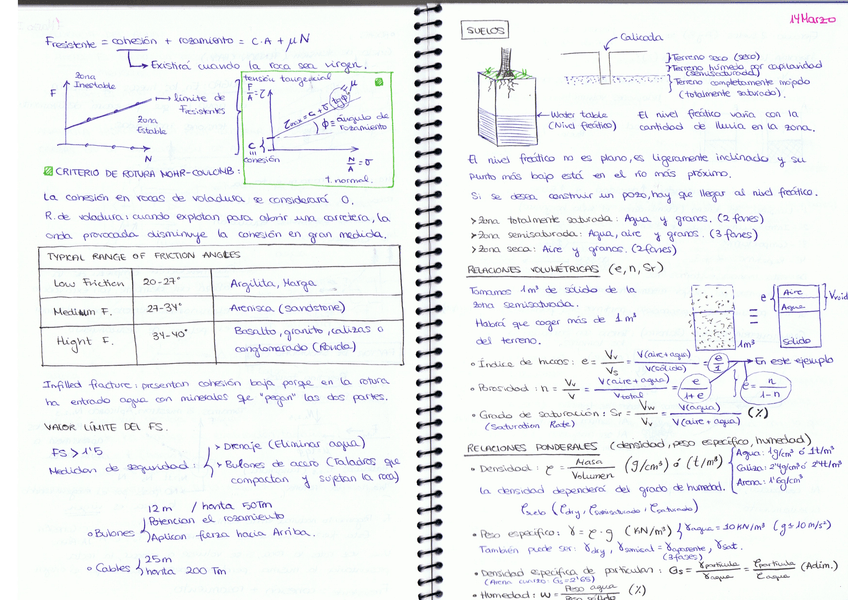 Fresistente = cohesión + rozamiento = C·A + μN
Existirá cuando la roca sea virgen.
Zona
Inestable
F
Límite de
Fresistentes
Zona
Estable
N
tensión tangencial
F/A = τ
τmax = c + σ · tg φ = μ
φ = ángulo de
rozamiento
C
cohesión
N/A = σ
T. normal.
CRITERIO DE ROTURA MOHR-COULOMB:
La cohesión en rocas de voladura se considerará 0.
R. de voladura: cuando explotan para abrir una carretera, la
onda provocada disminuye la cohesión en gran medida.
TYPICAL RANGE OF FRICTION ANGLES
Low Friction 20-27° Argilita, Marga
Medium F. 27-34° Arenisca (Sandstone)
Hight F. 34-40° Basalto, granito, calizas o
conglomerado (Ronda)
Infilled fracture: presentan cohesión baja porque en la rotura
ha entrado agua con minerales que "pegan" las dos partes.
VALOR LÍMITE DEL FS.
FS > 1'5
Medidan de seguridad:
> Drenaje (Eliminar agua)
> Bulones de acero (Taladros que
compactan y sujetan la roca)
12 m / hasta 50Tm
Potencian el rozamiento
∘ Bulones
Aplican fuerza hacia Arriba.
25m
∘ Cables
hasta 200 Tm
14 Marzo
SUELOS
Calicata
Terreno seco (seco)
Terreno húmedo por capilaridad
(semisaturada)
Terreno completamente mojado
(totalmente saturado).
Water table
(Nivel freático)
El nivel freático varía con la
cantidad de lluvia en la zona.
El nivel freático no es plano, es ligeramente inclinado y su
punto más bajo está en el río más próximo.
Si se desea construir un pozo, hay que llegar al nivel freático.
> Zona totalmente saturada: Agua y granos. (2 fases)
> Zona semisaturada: Agua, aire y granos. (3 fases)
> Zona seca: Aire y granos. (2 fases)
RELACIONES VOLUMÉTRICAS (e, n, Sr)
Tomamos 1m³ de sólido de la
zona semisaturada.
Habrá que coger más de 1 m³
del terreno.
1m³
=
e
Aire
Agua
Sólido
Void
∘ Índice de huecos: e = Vv/Vs = V(aire+agua)/V(sólido) = e/1 → En este ejemplo
∘ Porosidad: n = Vv/V = V(aire+agua)/Vtotal = e/1+e
e = n/1-n
∘ Grado de saturación: Sr = Vw/Vv = V(agua)/V(aire+agua) (%)
(Saturation Rate)
RELACIONES PONDERALES (densidad, peso específico, humedad)
∘ Densidad: ρ = Masa/Volumen (g/cm³) ó (t/m³)
Agua: 1g/cm³ ó 1t/m³
Caliza: 2'4g/cm³ ó 2'4t/m³
Arena: 1'6g/cm³
La densidad dependerá del grado de humedad.
ρsuelo (ρdry, ρsemisaturado, ρsaturado)
∘ Peso específico: γ = ρ·g (KN/m³) γagua = 10KN/m³ (g≈10m/s²)
También puede ser: γdry, γsemical = γaparente, γsat.
(3 fases)
∘ Densidad específica de partículas: Gs = γpartícula/γagua = ρpartícula/ρagua (Adim.)
(Arena cuarzo: Gs = 2'65)
∘ Humedad: ω = Peso agua/Peso sólido (%)